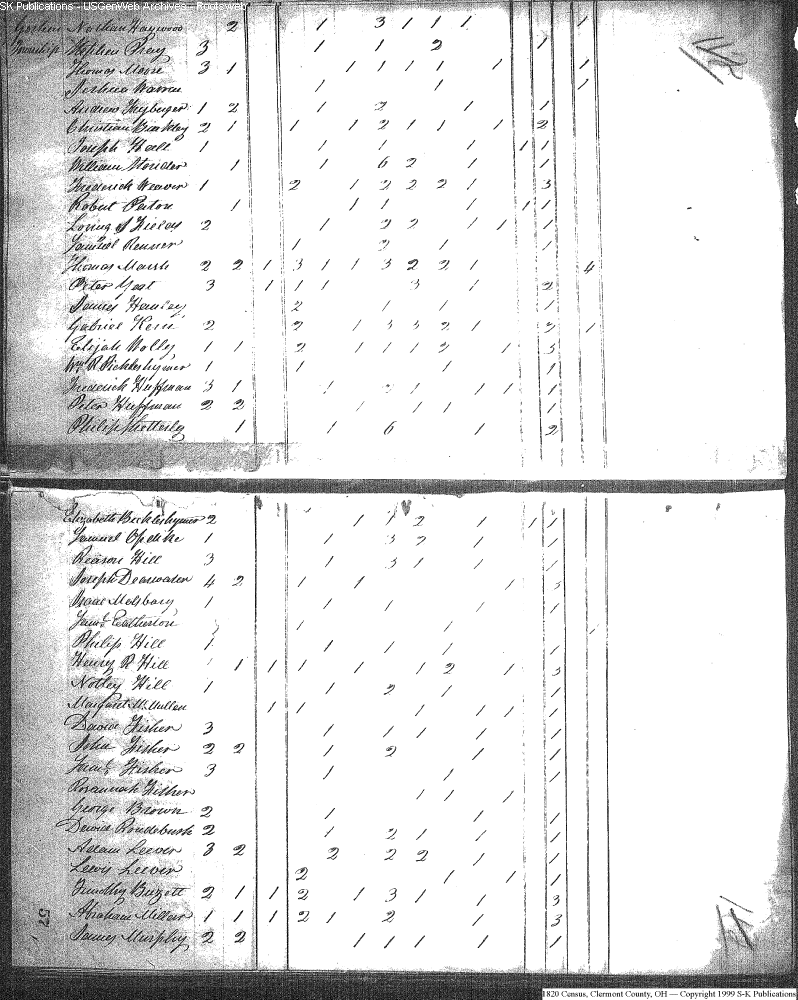 SK Publications - USGenWeb Archives - Rootsweb
Goshen Nathan Haywood 2 1 3 1 1 1 1
Township Stephen Bray 3 1 1 2 1
Thomas Moore 3 1 1 1 1 1 1 1
Joshua Warren 1 1 1
Andrew Frybarger 1 2 1 2 1 1
Christian Binkley 2 1 1 1 2 1 1 1 2
Joseph Hall 1 1 1 1 1 1
William 1 1 6 2 1 1
Frederick Weaver 1 2 1 2 2 2 1 3
Robert Paton 1 1 1 1 1 1
Loring 2 1 2 2 1 1 1
Samuel Renner 1 2 1 1
Thomas Marsh 2 2 1 3 1 1 3 2 2 1 4
Peter Yost 3 1 1 1 3 1 2
James 2 1 1 1
Gabriel Kerr 2 2 1 3 3 2 1 2 1
Elijah Nolly 1 1 2 1 1 1 2 1 3
Wm R Pickleshymer 1 1 1 1
Frederick Huffman 3 1 1 2 1 1 1 1
Peter Huffman 2 2 1 1 1 1
Philip 1 1 6 1 2
Elizabeth Beckleshymer 2 1 1 2 1 1 1
Samuel Opdike 1 1 3 2 1 1
Reason Hill 3 1 3 1 1 1
Joseph Dearwater 4 2 1 1 1 3
Isaac Molsbary 1 1 1 1 1
Jams Eatherton 1 1
Philip Hill 1 1 1 1 1
Henry R Hill 1 1 1 1 1 1 2 1 3
Notley Hill 1 1 2 1 1
Margaret McMullen 1 1 1 1 1 1
David Fisher 3 1 1 1 1 1
John Fisher 2 2 1 2 1 1
Jams Fisher 3 1 1 1
Fisher 1 1 1
George Brown 2 1 1 1
David Roudebush 2 1 2 1 1 1
Adam Leever 3 2 2 2 2 1 1
Lewis Leever 2 1 1 1
Timothy 2 1 1 2 1 3 1 1 3
Abraham Millar 1 1 1 2 1 2 1 3
James Murphy 2 2 1 1 1 1 1
1820 Census, Clermont County, OH — Copyright 1999 S-K Publications